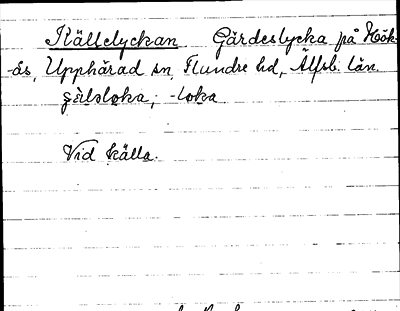 Källelyckan Gärdeslycka på Hök-
-ås, Upphärad sn, Flundre hd, Älfsb. län.
-loka
Vid källa.